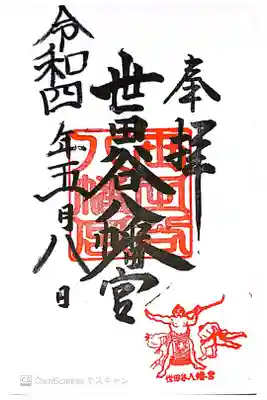 奉拝
世田谷八幡宮
令和四年五月八日
世田谷八幡宮
世田谷八幡宮
CS CamScanner でスキャン